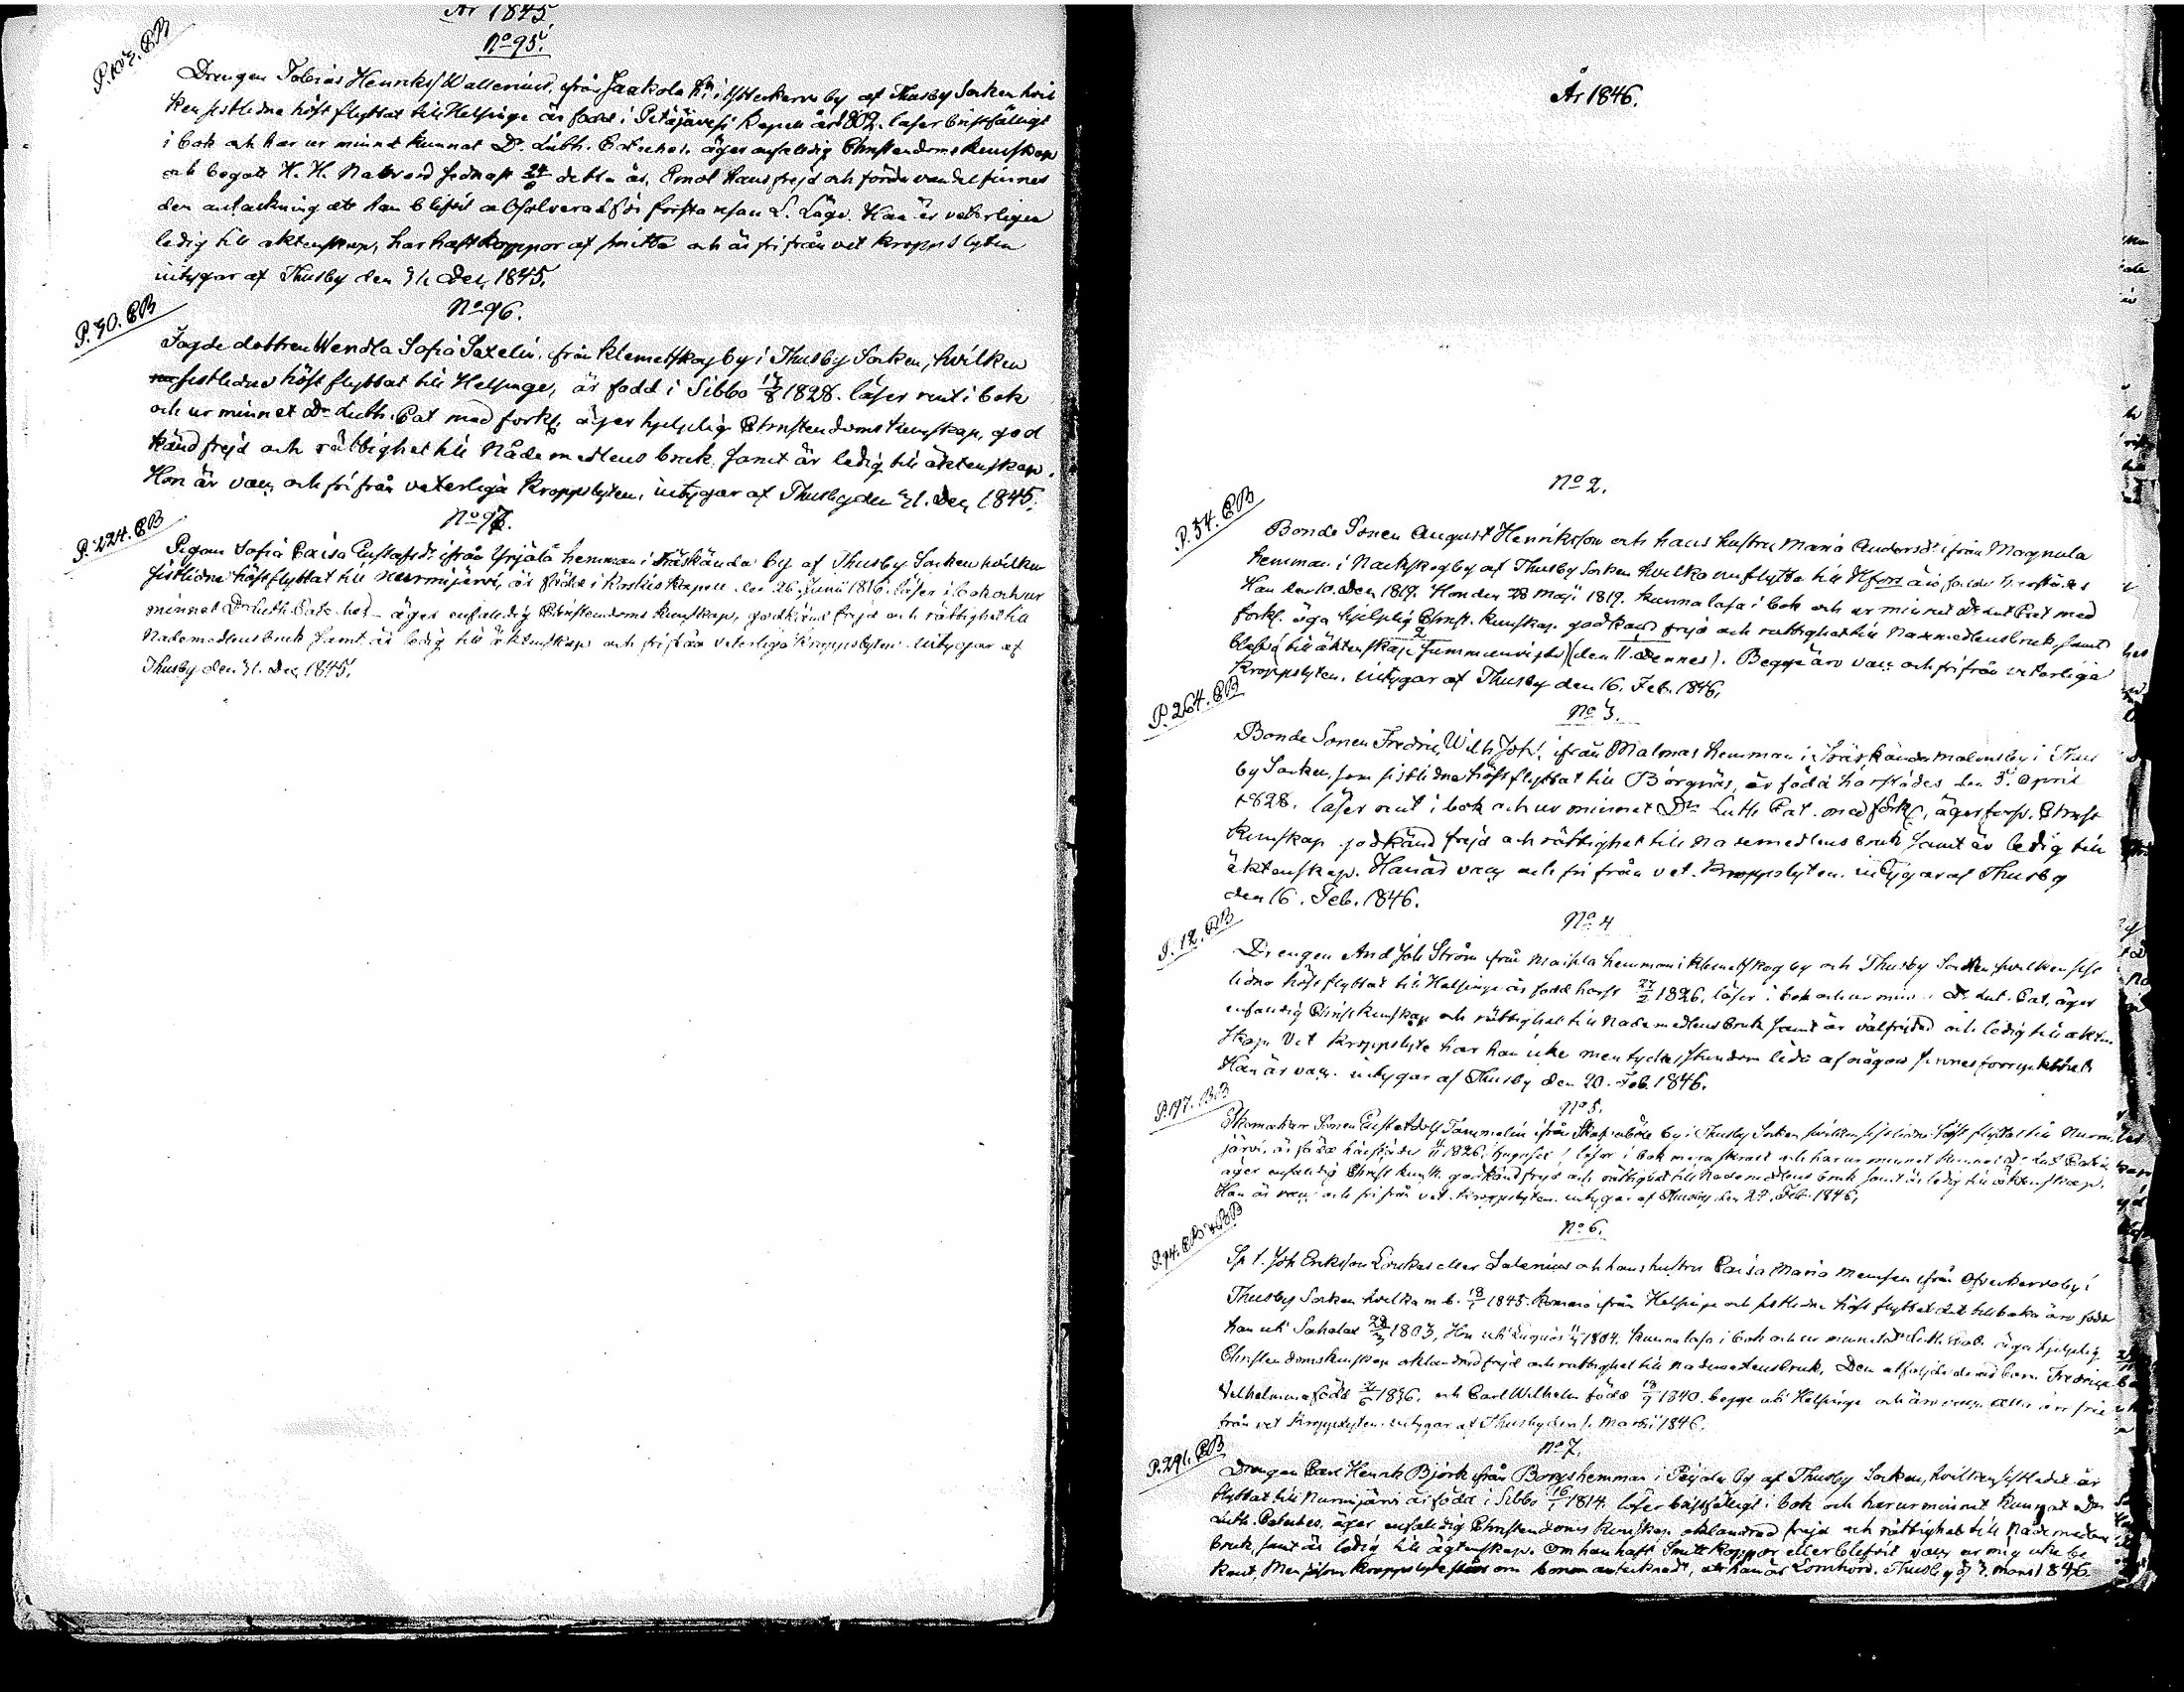 År 1845.
No 95.
P. 103. CB
Drengen Tobias Henrikss. Wallenius, ifrån Jaakola hn i Ytterkervo by af Thusby Socken hvil
ken sistledne höst flyttat till Helsinge är född i Petäjävesi Kapell år 1802. läser bristfälligt
i bok och har ur minnet kunnat D. Luth. Cateches. äger enfaldig Christendoms kunskap
och begått H. H. Nattvard sednast detta år. Emot hans frejd och förda vandel finnes
den anteckning att han blifvit absolverad för första resan L. Läge. Han är veterligen
ledig till äktenskap, har haft koppor af smitta och är fri från vet. kroppslyten
intygar af Thusby den 31 Dec. 1845.
No 96.
P. 30. CB
dottren Wendla Sofia Saxelin, från Klemetskog by i Thusby Socken, hvilken
sistledne höst flyttat till Helsinge, är född i Sibbo 1828. läser rent i bok
och ur minnet Dr Luth. Cat med förkl. äger hjelplig Christendoms kunskap, god
känd frejd och rättighet till Nådemedlens bruk, samt är ledig till äktenskap.
Hon är vacc. och fri från veterliga kroppslyten, intygar af Thusby den 31. Dec. 1845.
No 97.
P. 224. CB
Pigan Sofia Caisa Gustafsdr. ifrån Yrjälä hemman i Träskända by af Thusby Socken hvilken
sistlidne höst flyttat till Nurmijärvi, är född i Kapell den 26 Junii 1816. läser i bok och ur
minnet Dr Luth. Catches. äger enfaldig Christendoms kunskap, godkänd frejd och rättighet till
Nådemedlens bruk samt är ledig till äktenskap och fri från veterliga kroppslyten. Intygar af
Thusby den 31. Dec. 1845.
År 1846.
No 2.
P. 54. CB
Bonde Sonen August Henriksson och hans hustru Maria Andersdr. ifrån Magnula
hemman i Nackskog by af Thusby Socken hvilka nu flytta till Hfors äro födde härstädes
Han den 10. Dec. 1819. Hon den 28 Maji 1819. kunna läsa i bok och ur minnet Dr Lut Cat med
förkl. äga hjelplig Christ. kunskap, godkänd frejd och rättighet till Nademedlens bruk, samt
blefvo till äktenskap sammanvigde (den 11. dennes). Begge äro vacc. och fri från veterliga
kroppslyten, intygar af Thusby den 16. Feb. 1846.
No 3.
P. 264. CB
Bonde Sonen Fredric Wilh. Joh. ifrån Malmas hemman i Träskända Malmsby i Thus
by Socken, som sistlidne höst flyttat till Borgnäs, är född härstädes den 3. April
1828. läser rent i bok och ur minnet Dr Luth Cat. med förkl. äger förs. Christ
kunskap godkänd frejd och rättighet till Nademedlens bruk, samt är ledig till
äktenskap. Han är vacc. och fri från vet. kroppslyten. intygar af Thusby
den 16. Feb. 1846.
No 4
P. 12. CB
Drengen And. Joh Ström ifrån Maihla hemman i Klemetskog by och Thusby Socken hvilken sist
lidne höst flyttat till Helsinge är född härst 27/2 1826. läser i bok och ur min. Dr Lut. Cat, äger
enfaldig Christ kunskap och rättighet till Nademedlens bruk samt är välfrejdad och ledig till äkten
skap. Vet kroppslyte har han icke men tyckes stundom lida af någon sinnesförryckthet.
Han är vacc. intygar af Thusby den 20. Feb. 1846.
No 5.
P. 197.
Skomakare Sonen Gust Adolf Tammelin ifrån by i Thusby Socken hvilken sistlidne höst flyttat till Nurmi
järvi, är född härstädes 1826. läser i bok och har ur minnet kunnat Dr Lut
äger enfaldig Christ kunsk. godkänd frejd och rättighet till Nademedlens bruk samt är ledig till äktenskap.
Han är vacc. och fri från vet. kroppslyten. intygar af Thusby den Feb. 1846.
No 6.
P. 94. CB
Joh Eriksson eller och hans hustru Caisa Maria ifrån Ofverkervo by i
Thusby Socken hvilka 1845. kommo ifrån Helsinge och sistledne höst flyttat dit tillbaka äro födde
han uti Sahalax 1803, Hon uti 1804. kunna läsa i bok och ur minnet Dr Luth äga hjelplig
Christendoms kunskap oklandrad frejd och rättighet till Nademedlens bruk. Dem åtföljde deras barn Fredrica
Vilhelmina född 1836. och Carl Wilhelm född 1840. begge uti Helsinge och äro vacc. alla äro fria
från vet kroppslyten. intygar af Thusby den 1. Martii 1846.
No 7.
P. 291. CB
Drengen Carl Henrik Björk ifrån Borgs hemman i by af Thusby Socken, hvilken sistledet år
flyttat till Nurmijärvi är född i Sibbo 16/1 1814. läser bristfälligt i bok och har ur minnet kunnat Dr
Luth. Cateches. äger enfaldig Christendoms kunskap oklandrad frejd och rättighet till Nådemedlens
bruk, samt är ledig till ägtenskap. Om han haft Smitt koppor eller blifvit vacc. är mig icke be
kant. Men såsom kroppslyte finnes om honom antecknadt, att han är Lomhörd. Thusby d. 3. Mars 1846.